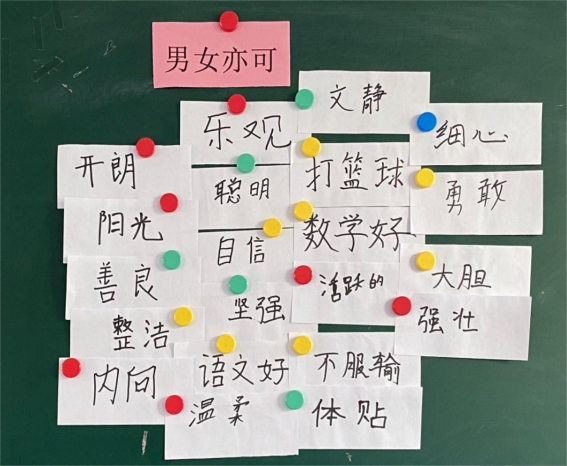 男女亦可
文静
乐观
细心
开朗
聪明
打篮球
勇敢
阳光
自信
数学好
善良
坚强
活跃的
大胆
整洁
强壮
内向
语文好
不服输
温柔
体贴